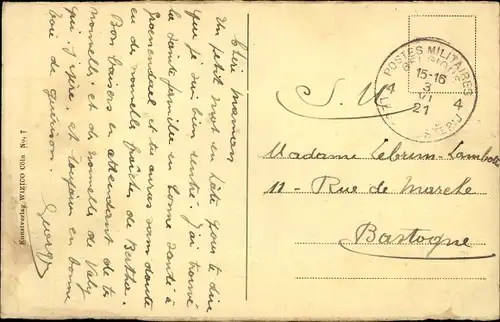 Chère maman
Un petit mot en hâte pour te dire
que je suis bien rentré. J'ai trouvé
la sainte famille en bonne santé à
Groenendael et tu auras sans doute
eu de nouvelles fraîches de Berthe.
Bon baisers en attendant de tes
nouvelles, et de nouvelles de Valy
qui j'espère est toujours en bonne
voie de guérison.
Georges
Kunstverlag WIZICO Cöln No. 1
POSTES MILITAIRES
BELGIQUE
15-16
3
VI
21
4 4
S.M.
Madame Lebrun-Lambotte
11 - Rue de Marche
Bastogne